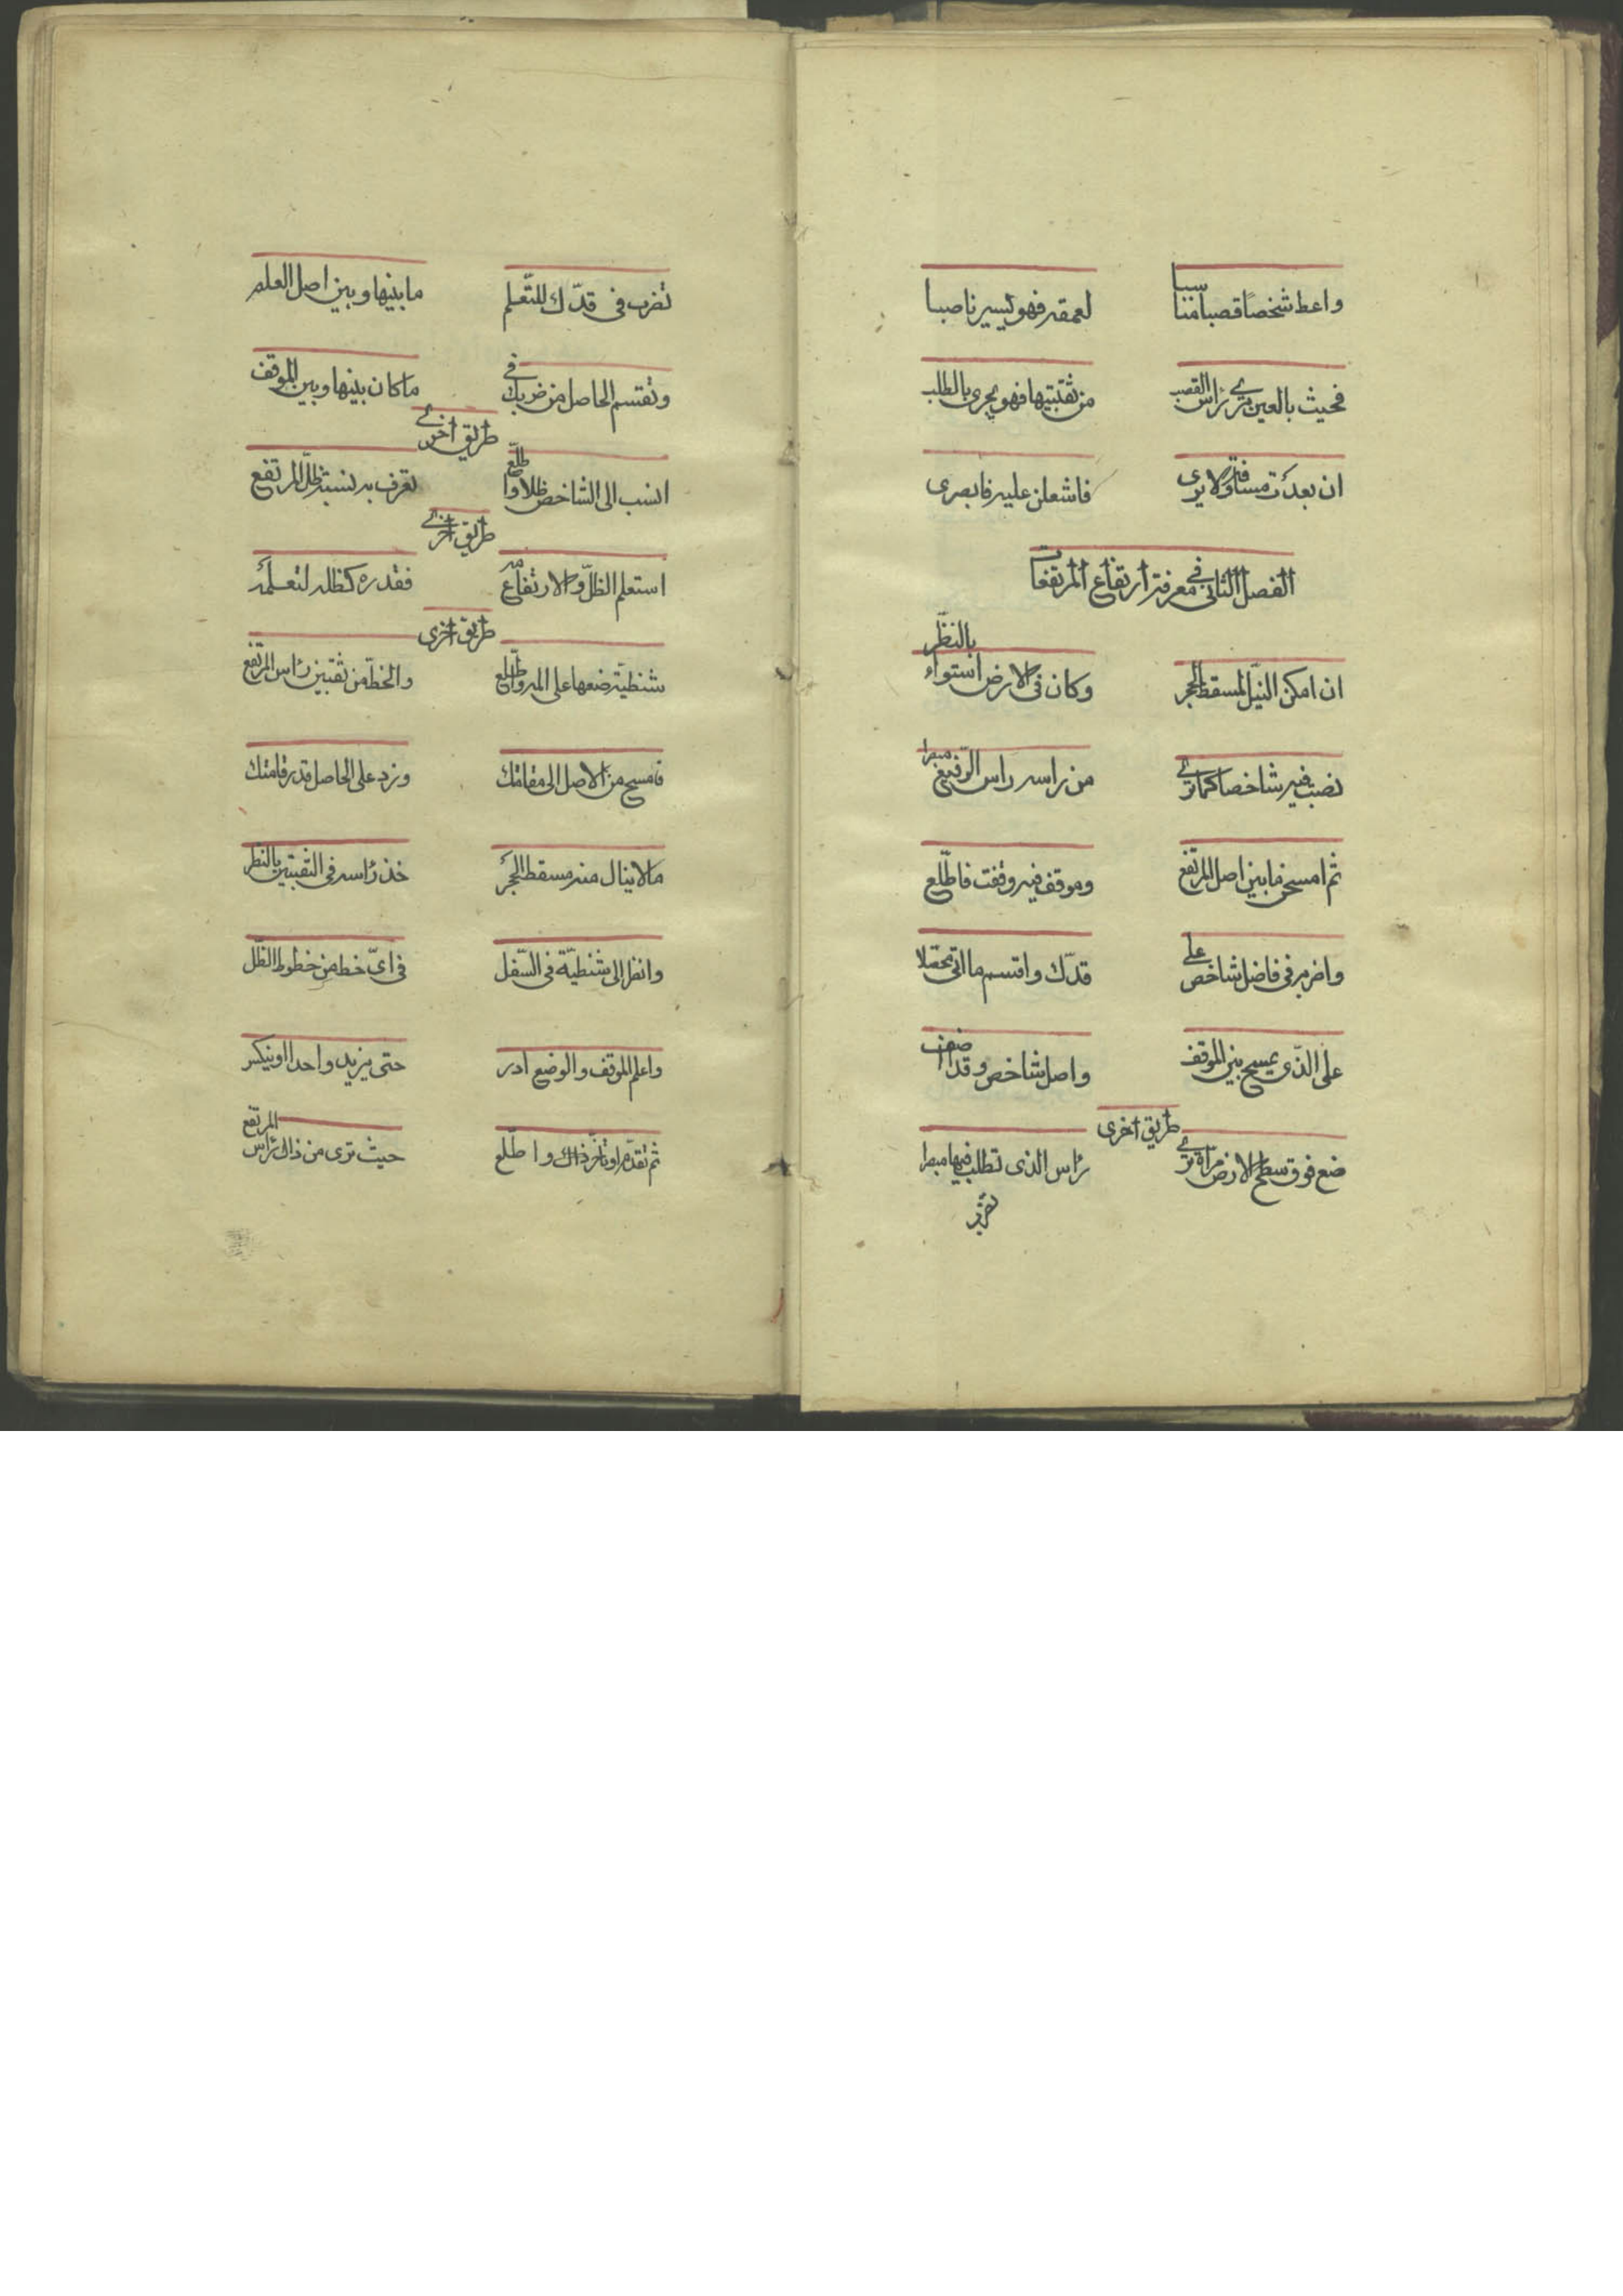 واعط شخصًا قصبا مناسبا لعمقه فهو يسير ناصبا
فحيث بالعين ترى رأس القصب من ثقبتيها فهو يجرى بالطلب
ان بعدت مسافة ولا يرى فاشعلن عليه نا يصرى
الفصل الثانى فى معرفة ارتفاع المرتفعات
ان امكن النيل لمسقط الحجر وكان فى الارض استواء بالنظر
نصبت فيه شاخصا كما ترى من راسه راس الرفيع مبصرا
ثم امسحن ما بين اصل المرتفع وموقف فيه وقفت فاطلع
واضربه فى فاضل شاخص على قدّك واقسم ما اتى محصّلا
على الذى يمسح بين الموقف واصل شاخص وقدا
طريق اخرى
ضع فوق سطح الارض مرآة ترى رأس الذى تطلب فيها مبصرا
تضرب
تضرب فى قدّك للتّعلم ما بينها وبين اصل العلم
وتقسم الحاصل من ضربك فى ما كان بينها وبين الموقف
طريق اخرى
انسب الى الشاخص ظلا واطّلع تعرف به نسبة ظلّ المرتفع
طريق اخرى
استعلم الظلّ والارتفاع مه فقدره كظله لتعلمه
طريق اخرى
شظيّة ضعها على المه واطّلع والخطّ من ثقبين رأس المرتفع
فامسح من الاصل الى مقامتك وزد على الحاصل قدر قامتك
ما لا ينال منه مسقط الحجر خذ رأسه فى الثقبتين بالنظر
وانظر الى شظيّة فى السّفل فى اىّ خط من خطوط الظّل
واعلم الموقف والوضع ادر حتى يزيد واحدا او
ثم تقدّم او تأخّر ذاك واطّلع حيث ترى من ذاك رأس المرتفع